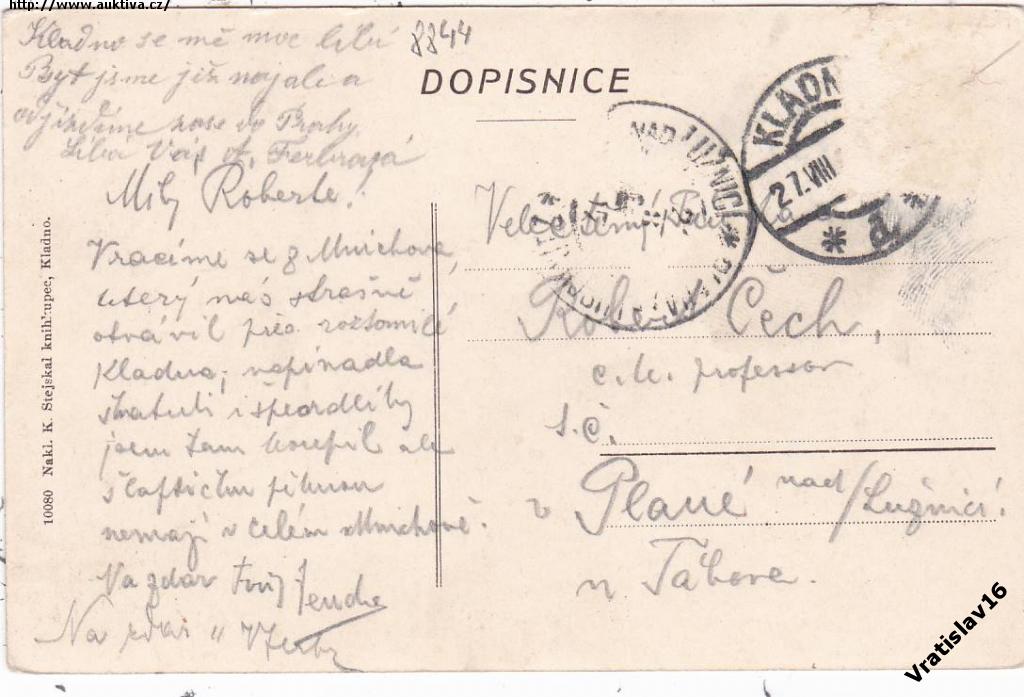 http://www.auktiva.cz/
Kladno se mě moc líbí
8844
Byt jsme již najali a
odjíždíme zase do Prahy
Líbá Vás
DOPISNICE
Milý Roberte!
Vracíme se z Mnichova,
který nás strašně
otrávil přes roztomilé
Kladno; napínadla
i špendlíky
jsem tam koupil ale
nemají v celém Mnichově.
Na zdar tvůj
Na zdar
10080 Nakl. K. Stejskal knihkupec, Kladno.
NAD LUŽNICÍ
KLADN
27.VIII
a
Velectěný Pan
Robert Čech,
c.k. professor
t.č.
v Plané nad/Lužnicí.
u Tábora.
Vratislav16